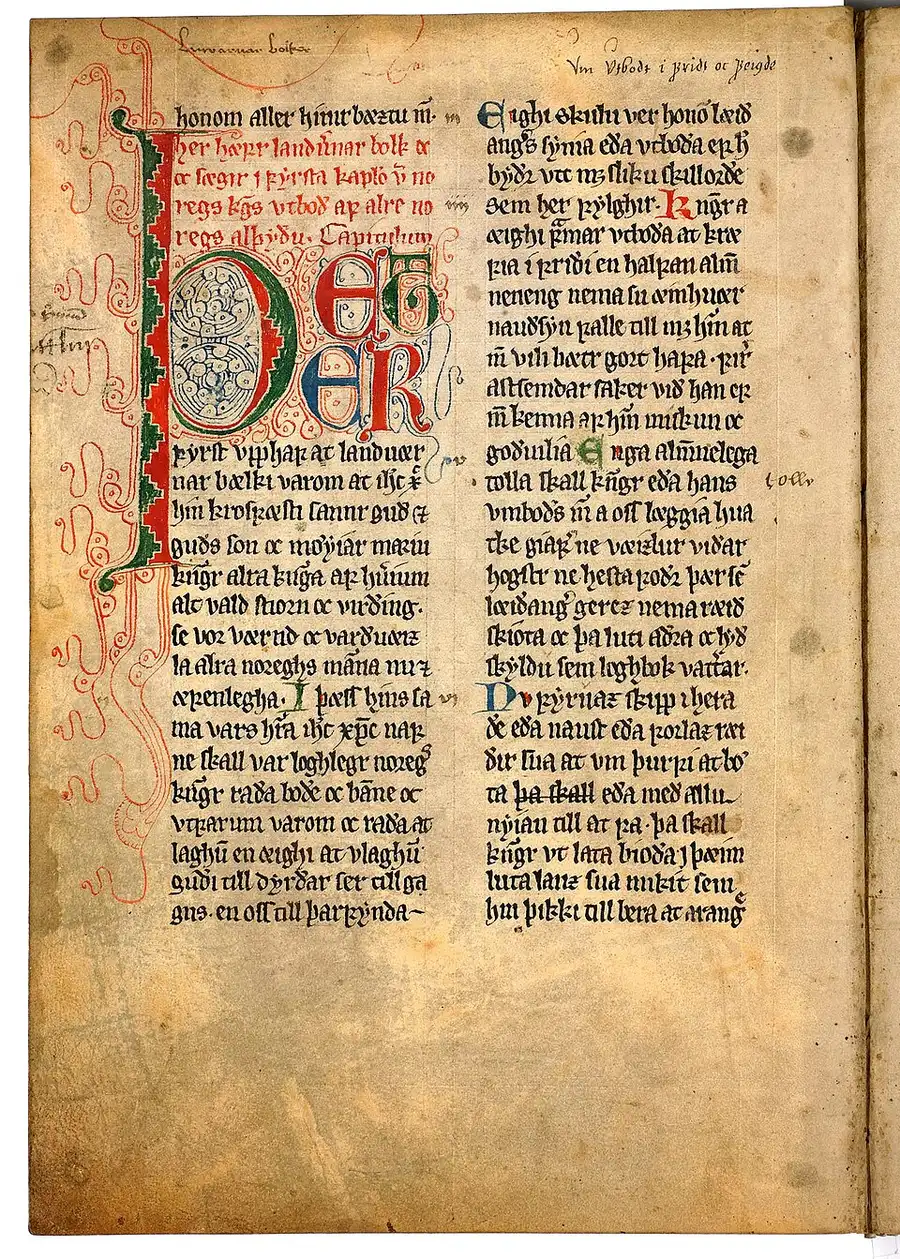 Vm Vtbodt i fridt oc feigde
honom aller hinir bæztu m̄.
her hæfr landuarnar bolk oc
oc sægir j fyrsta kapło v̄ no
regs kgs vtboð af alre no
regs alþyðu. Capitulum
ÞET
ER
fyrst vpphaf at landuær
nar bælki varom at ihc xr̄
hin krosfæsti sannr guð ⁊
guðs son oc møyiar mariu
kngr alra kn̄ga af hūium
alt vald stiorn oc virðing.
se vor værnd oc varðuæiz
la alra noreghs manna nu ⁊
æfenlegha. I þæss hins sa
ma vars hr̄ra ihc xpc naf
ne skall var loghlegr noregs
kngr raða boðe oc bāne oc
vtfarum varom oc raða at
laghū en æighi at vlaghū
guði till dyrðar ser till ga
gns. en oss till þarfynda
Eighi skulu ver honō læið
angs synia eða vtboða ef h̄
byðr vtt mz sliku skillorðe
sem her fylghir. Kngr a
æighi framar vtboða at kræ
fia i friði en halfan alm̄
nenneng nema su æmhuær
nauðsyn falle till mz hm̄ at
m̄ vili bætr gort hafa. firir
astsemdar saker við han ef
m̄ kenna af hm̄ miskun oc
goðuilia Enga almnelega
tolla skall kn̄gr eða hans
vmboðs m̄ a oss læggia hua
tke giafir ne væizlur viðar
hogstr ne hesta foðr þær sē
læiðangs gerez nema ræið
skiota oc þa luti aðra oc lyð
skyldu sem loghbok vattar.
Nv fyrnaz skipp i hera
ðe eða naust eða forlaz ræi
ðir sua at vm þurfi at bø
ta þa skall eða með allu
nyian till at fa. þa skall
kngr vt lata bioða j þæim
luta lanz sua mikit sem
hm̄ þikki till bera at arang
tolle